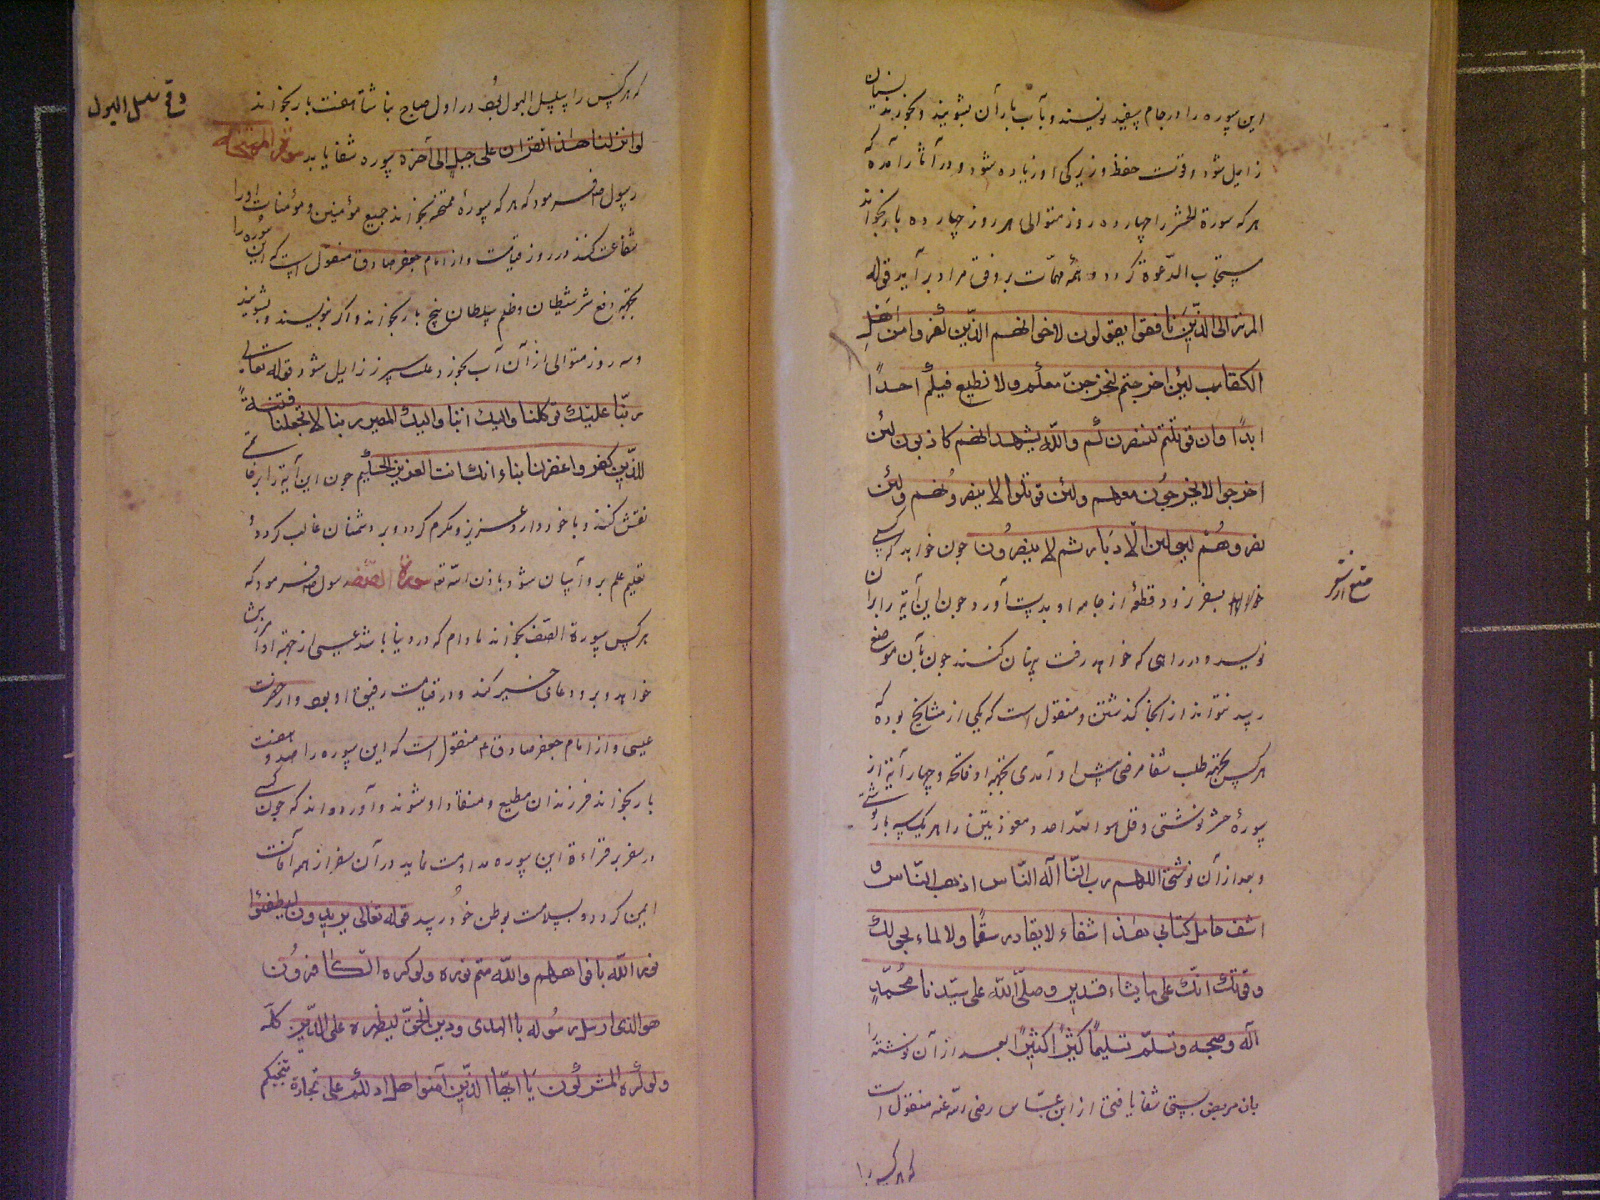 این سوره را در جام سفید نویسند و بآب باران بشویند و بخورند نسیان
زایل شود و قوت حفظ و زیرکی او زیاده شود و در آثار آمده که
هر که سورة الحشر را چهارده روز متوالی هر روز چهارده بار بخواند
مستجاب الدعوة گردد و همه مهمّات بر وفق مراد برآید قوله
الم تر الی الذّین نافقوا یقولون لاخوانهم الذّین کفروا من اهل
الکتاب لئن اخرجتم لنخرجنّ معکم ولا نطیع فیکم احدًا
ابدًا وان قوتلتم لننصرنکم والله یشهد انهم کاذبون لئن
اخرجوا لا یخرجون معهم ولئن قوتلوا لا ینصرونهم ولئن
نصروهم لیولن الادبار ثم لا ینصرون چون خواهد که کسی
بسفر نرود قطعهٔ از جامه او بدست آورد و چون این آیة را بران
نویسد و در راهی که خواهد رفت پنهان کنند چون بآن موضع
رسد نتواند از انجا گذشتن و منقول است که یکی از مشایخ بوده که
هر کس بجهة طلب شفا مرضی پیش او آمدی بجهة او فاتحه و چهار آیة از
سورهٔ حشر نوشتی و قل هو الله احد و معوذتین را هر یک سه بار
و بعد از آن نوشتی اللهم رب النّاس اله النّاس اذهب النّاس و
اشف حامل کتابی هذا شفاء لا یغادر سقمًا ولا الماء بحولك
وقوتك انّك علی ما یشاء قدیر وصلّی الله علی سیّدنا محمّدٍ
آله وصحبه وسلّم تسلیمًا کثیرًا کثیرًا بعد از آن نوشته را
بان مریض بستی شفا یافتی از ابن عبّاس رضی الله عنه منقول است
که هر کس را
منع از سفر
که هر کس را سلسل البول بود در اول صباح ناشتا هفت بار بخواند
لو انزلنا هذا القران علی جبل الی آخره سوره شفا یابد سورة الممتحنة
رسول ص فرمود که هر که سورهٔ ممتحنه بخواند جمیع مؤمنین و مؤمنات او را
شفاعت کنند در روز قیامت و از امام جعفر صادق منقول است که این سوره را
بجهة دفع شر شیطان و ظلم سلطان پنج بار بخواند و اگر بنویسند و بشویند
و سه روز متوالی از آن آب بخورد علت سپرز زایل شود قوله تعالی
ربّنا علیك توکلنا والیك انبنا والیك المصیر ربنا لا تجعلنا فتنةً
للذّین کفروا واغفرلنا ربنا انك انت العزیز الحکیم چون این آیة را بر
نقش کنند و با خود دارد عزیز و مکرم گردد و بر دشمنان غالب گردد و
تعلیم علم بر و آسان شود باذن الله تع سورة الصّف رسول ص فرمود که
هر کس سورة الصّف بخواند مادام که در دنیا باشد عیسی از جهة او آمرزش
خواهد و بر و دعای خیر کند و در قیامت رفیق او بود و از حضرت
عیسی و از امام جعفر صادق ع منقول است که این سوره را صد و هفت
بار بخواند فرزندان مطیع و منقاد او شوند و آورده‌اند که چون کسی
در سفر بر قراءة این سوره مداومت نماید در آن سفر از همه آفات
ایمن گردد و بسلامت بوطن خود رسد قوله تعالی یریدون لیطفئوا
نور الله بافواههم والله متم نوره ولو کره الکافرون
هو الذی ارسل رسوله بالهدی ودین الحقّ لیظهره علی الدّین کلّه
ولو کره المشرکون یا ایّها الذّین آمنوا هل ادلکم علی تجارة تنجیکم
سلسل البول